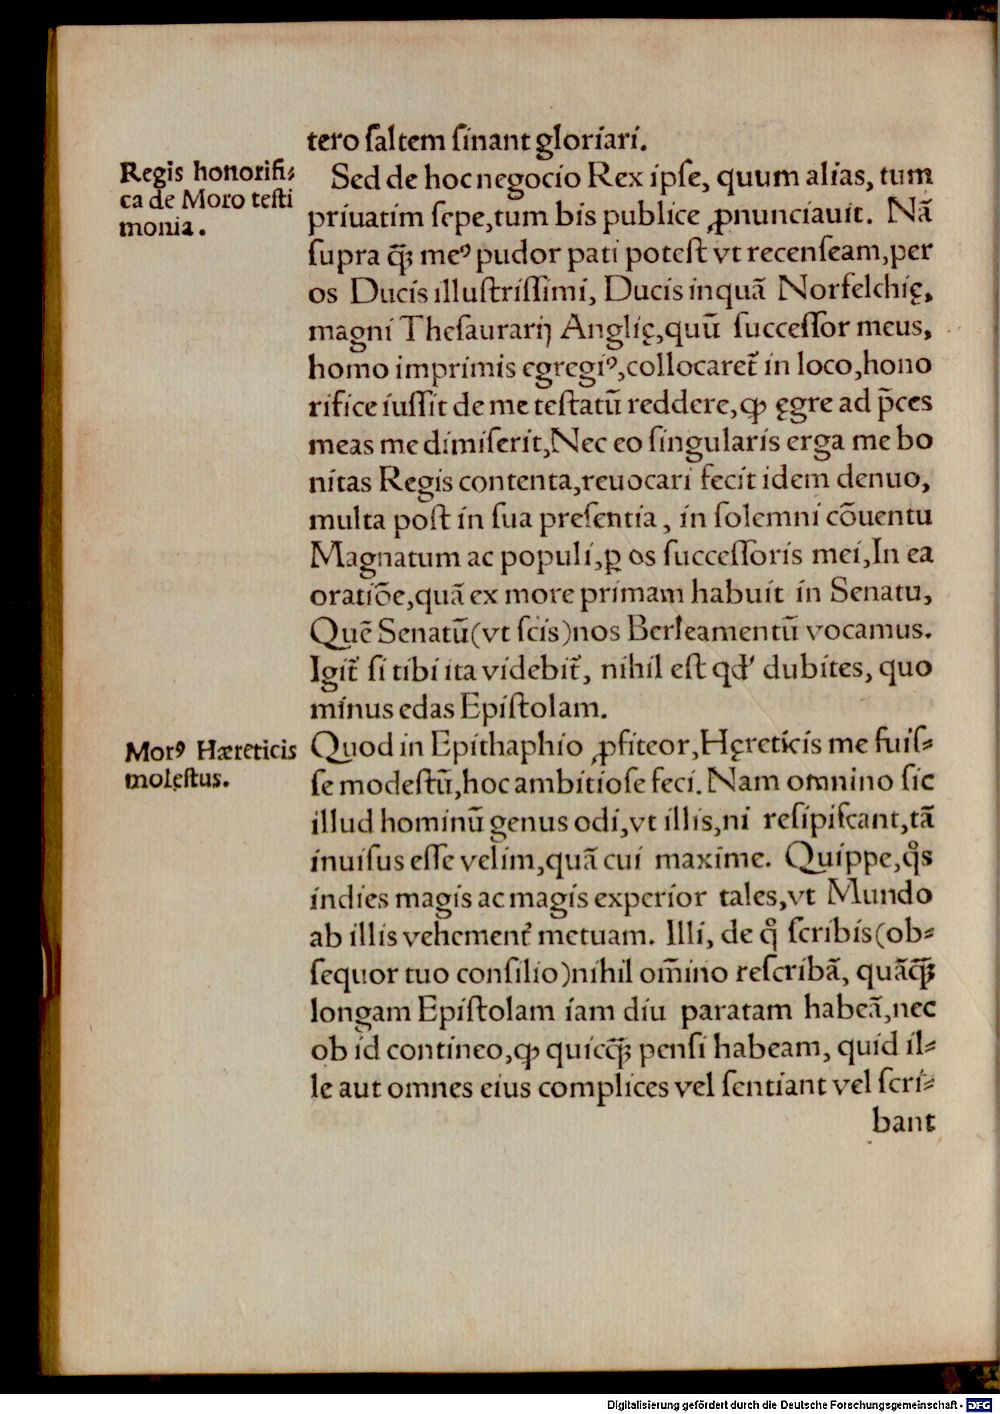 tero ſaltem ſinant gloriari.
Regis honorifi⸗
ca de Moro teſti
monia.
Sed de hoc negocio Rex ipſe, quum alias, tum
priuatim ſepe, tum bis publice ꝓnunciauit. Nā
ſupra q̄ꝫ meꝰ pudor pati poteſt vt recenſeam, per
os Ducis illuſtriſſimi, Ducis inquā Norfelchię,
magni Theſaurarij Anglię, quū ſucceſſor meus,
homo imprimis egregiꝰ, collocaret᷑ in loco, hono
rifice iuſſit de me teſtatū reddere, ꝙ ęgre ad p̄ces
meas me dimiſerit, Nec eo ſingularis erga me bo
nitas Regis contenta, reuocari fecit idem denuo,
multa poſt in ſua preſentia, in ſolemni cōuentu
Magnatum ac populi, ꝑ os ſucceſſoris mei, In ea
oratiōe, quā ex more primam habuit in Senatu,
Quē Senatū (vt ſcis) nos Berleamentū vocamus.
Igit᷑ ſi tibi ita videbit᷑, nihil eſt qd' dubites, quo
minus edas Epiſtolam.
Morꝰ Hæreticis
moleſtus.
Quod in Epithaphio ꝓfiteor, Hęreticis me fuiſ⸗
ſe modeſtū, hoc ambitioſe feci. Nam omnino ſic
illud hominū genus odi, vt illis, ni reſipiſcant, tā
inuiſus eſſe velim, quā cui maxime. Quippe, qͦs
indies magis ac magis experior tales, vt Mundo
ab illis vehement᷑ metuam. Illi, de qͦ ſcribis (ob⸗
ſequor tuo conſilio) nihil om̄ino reſcribā, quāq̄ꝫ
longam Epiſtolam iam diu paratam habeā, nec
ob id contineo, ꝙ quicq̄ꝫ penſi habeam, quid il⸗
le aut omnes eius complices vel ſentiant vel ſcri⸗
bant
Digitalisierung gefördert durch die Deutsche Forschungsgemeinschaft - DFG